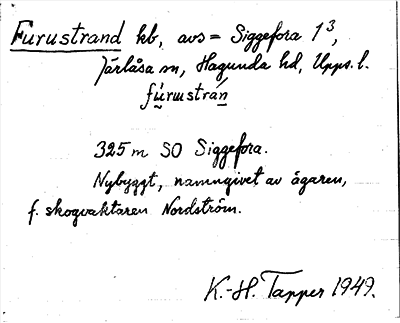 Furustrand kb, avs = Siggefora 1³,
Järlåsa sn, Hagunda hd, Upps. l.
fúrustrán
325 m SO Siggefora.
Nybyggt, namngivet av ägaren,
f. skogvaktaren Nordström.
K.-H. Tapper 1949.